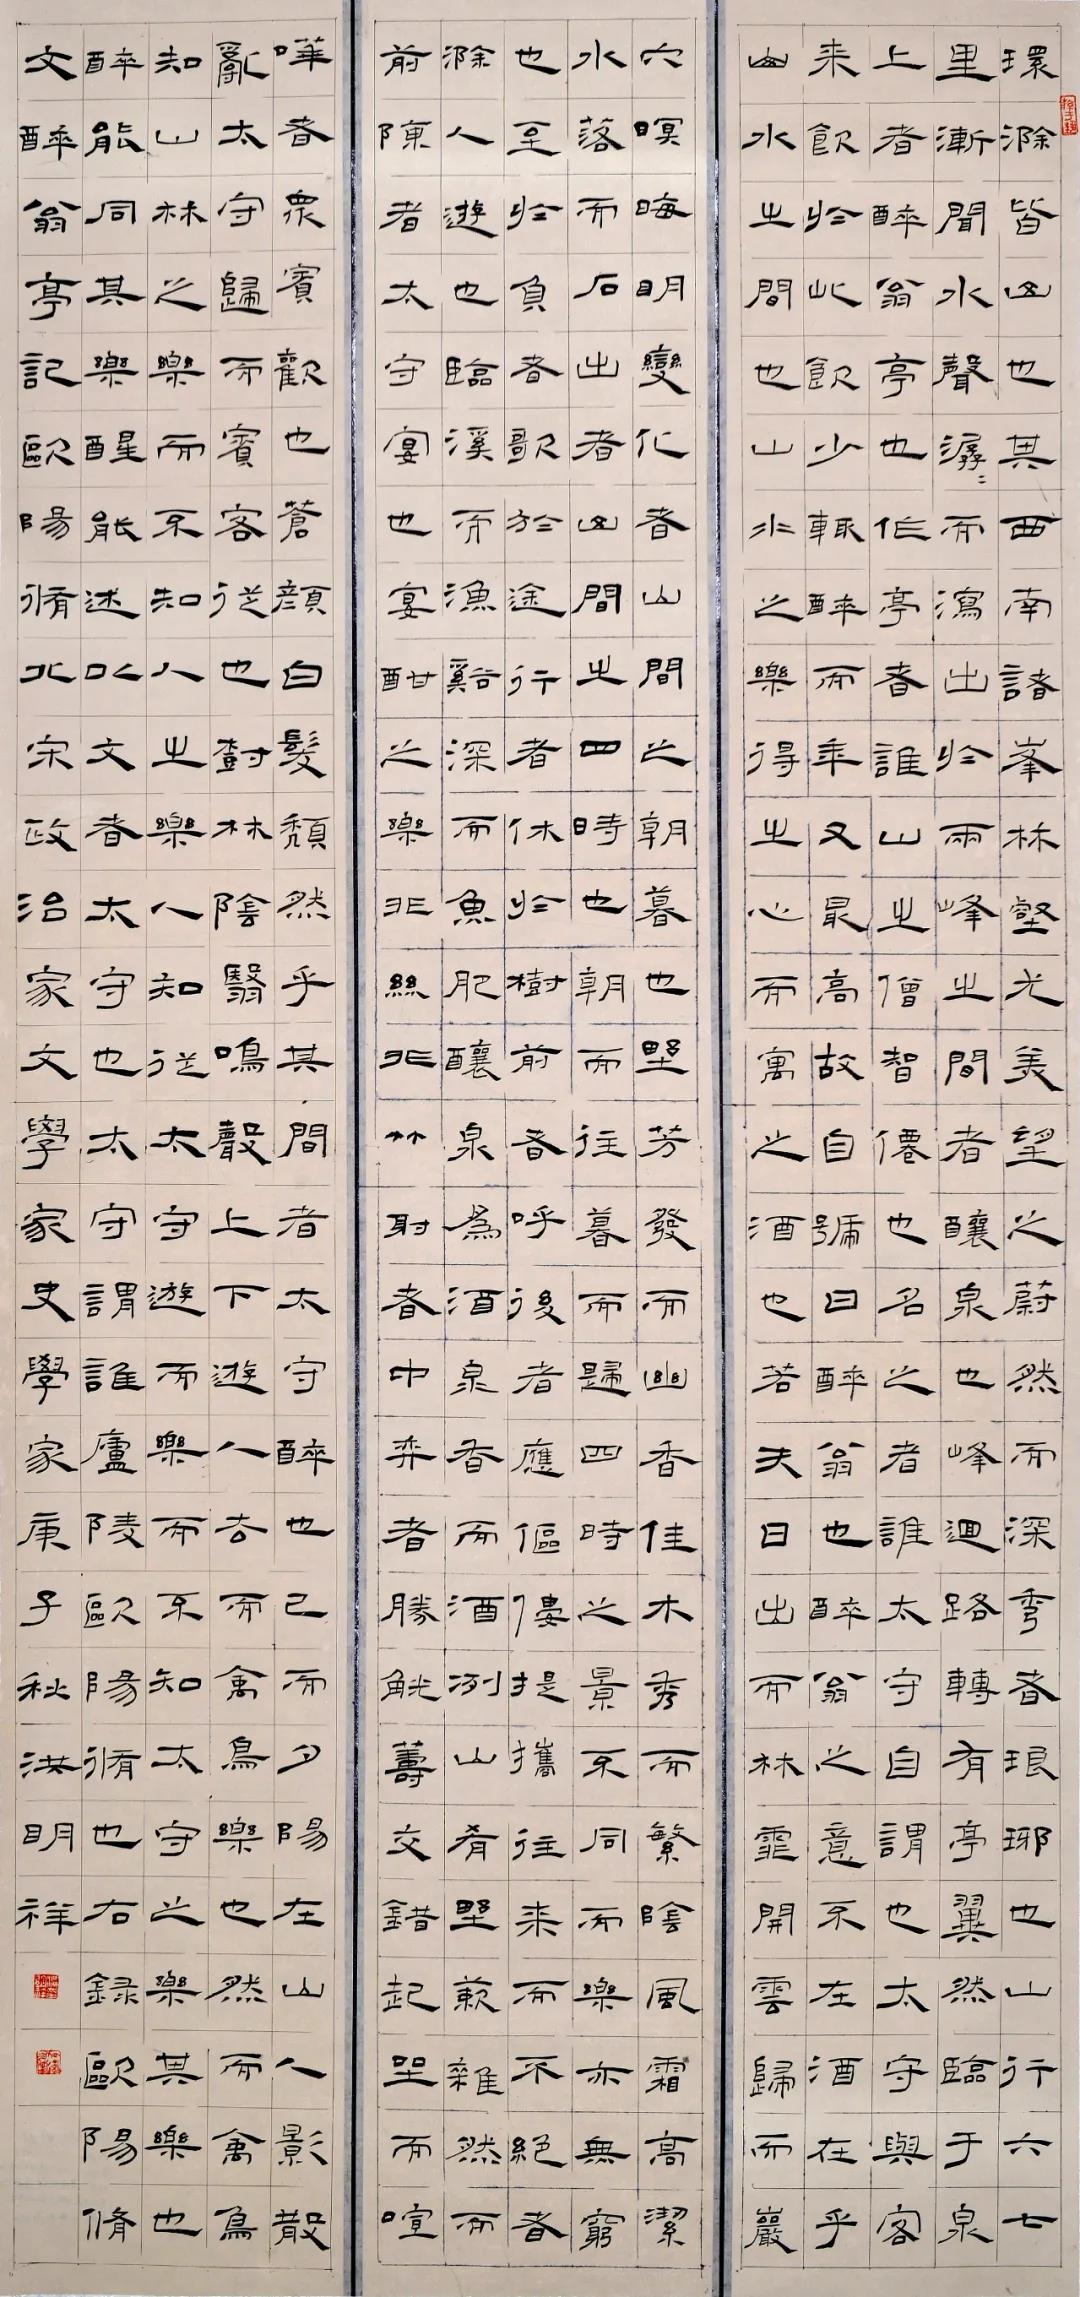 環滁皆山也其西南諸峯林壑尤美望之蔚然而深秀者琅琊也山行六七
里漸聞水聲潺〻而瀉出於兩峰之間者釀泉也峰迴路轉有亭翼然臨于泉
上者醉翁亭也作亭者誰山之僧智僊也名之者誰太守自謂也太守與客
来飲於此飲少輒醉而年又最高故自號曰醉翁也醉翁之意不在酒在乎
山水之間也山水之樂得之心而寓之酒也若夫日出而林霏開雲歸而巖
穴暝晦明變化者山間之朝暮也野芳發而幽香佳木秀而繁陰風霜高潔
水落而石出者山間之四時也朝而往暮而歸四時之景不同而樂亦無窮
也至於負者歌於途行者休於樹前者呼後者應傴僂提攜往来而不絕者
滁人遊也臨溪而漁谿深而魚肥釀泉為酒泉香而酒冽山肴野蔌雜然而
前陳者太守宴也宴酣之樂非絲非竹射者中弈者勝觥籌交錯起坐而喧
嘩者衆賓歡也蒼顏白髮頹然乎其間者太守醉也已而夕陽在山人影散
亂太守歸而賓客從也樹林陰翳鳴聲上下遊人去而禽鳥樂也然而禽鳥
知山林之樂而不知人之樂人知從太守遊而樂而不知太守之樂其樂也
醉能同其樂醒能述以文者太守也太守謂誰廬陵歐陽脩也右録歐陽脩
文醉翁亭記歐陽脩北宋政治家文學家史學家庚子秋洪明祥